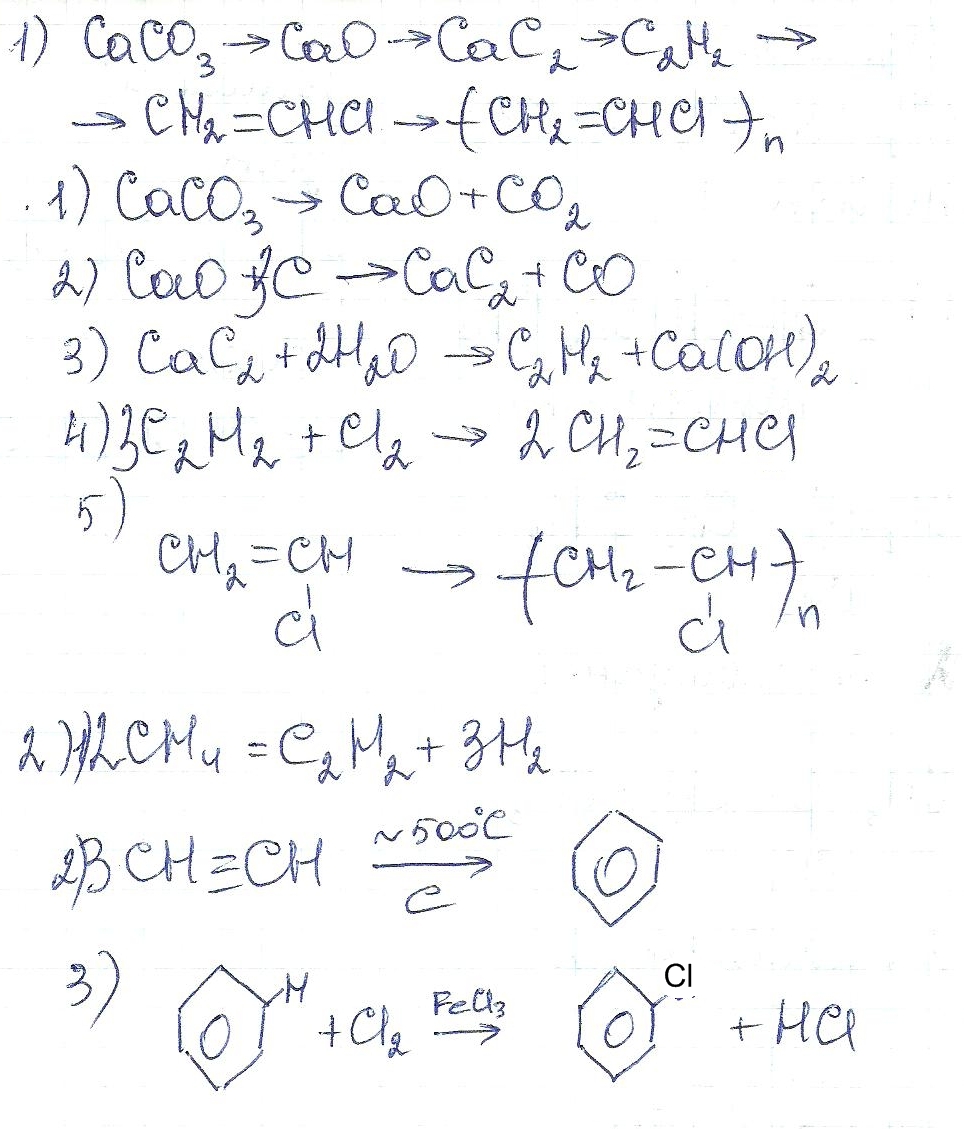 1) CaCO₃ → CaO → CaC₂ → C₂H₂ →
→ CH₂=CHCl → (CH₂=CHCl)n
1) CaCO₃ → CaO + CO₂
2) CaO + 3C → CaC₂ + CO
3) CaC₂ + 2H₂O → C₂H₂ + Ca(OH)₂
4) 3C₂H₂ + Cl₂ → 2CH₂=CHCl
5)
CH₂=CH → (CH₂–CH)n
Cl Cl
2) 1) 2CH₄ = C₂H₂ + 3H₂
~500°C
2) 3CH≡CH →
C
Cl
3) H FeCl₃
+ Cl₂ → + HCl